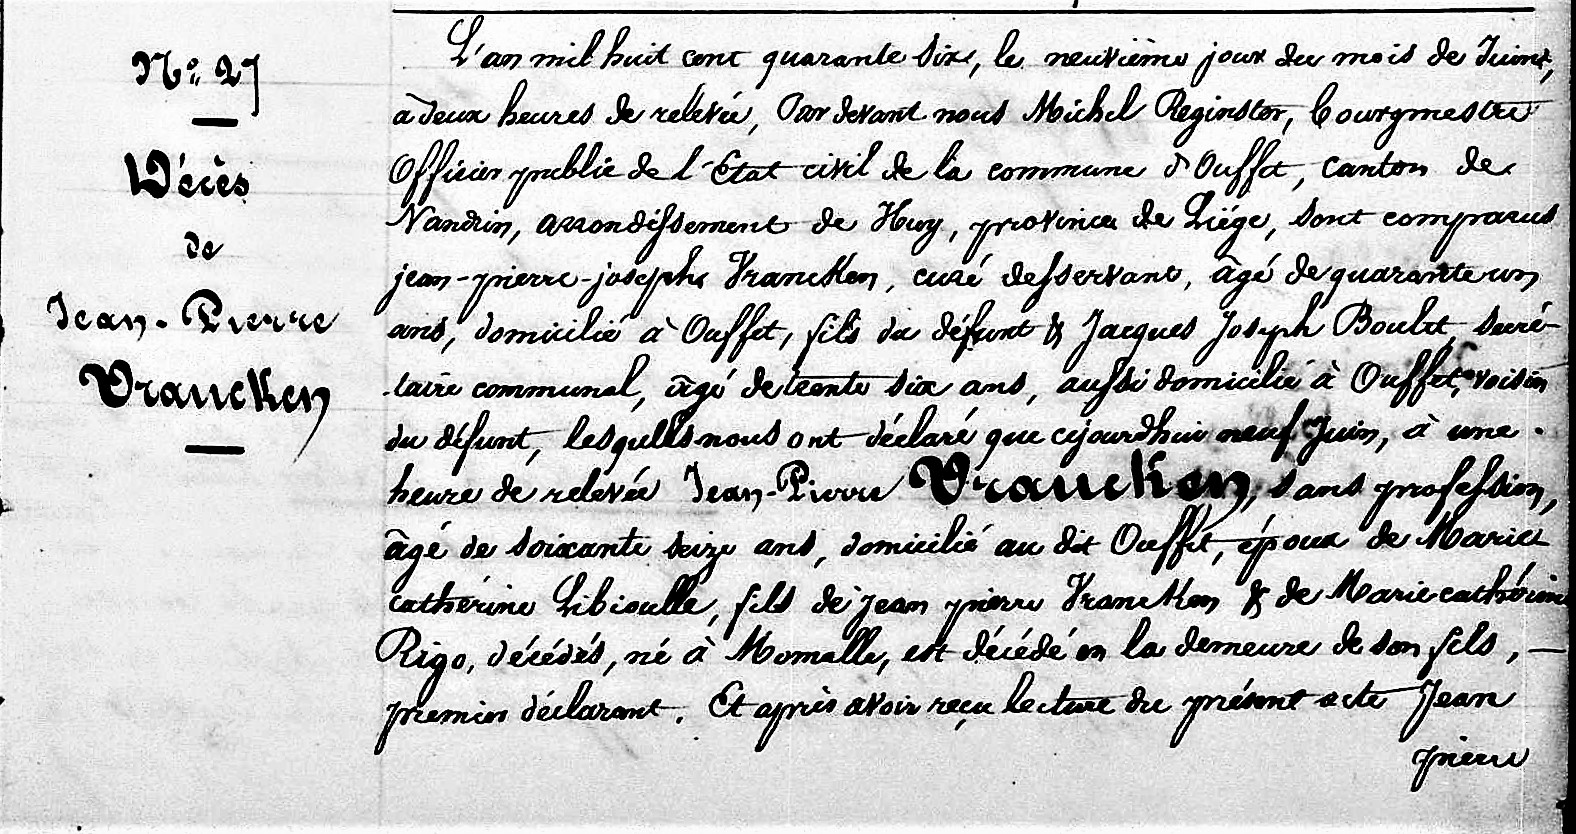 N° 27
Décès
de
Jean-Pierre
Vrancken
L'an mil huit cent quarante six, le neuvième jour du mois de Juin,
à deux heures de relevée, Par devant nous Michel Reginster, bourgmestre
Officier public de l'Etat civil de la commune d'Ouffet, canton de
Nandrin, arrondissement de Huy, province de Liége, sont comparus
jean-pierre-joseph Vrancken, curé desservant, âgé de quarante un
ans, domicilié à Ouffet, fils du défunt & Jacques Joseph Boulet, secré-
-taire communal, âgé de trente six ans, aussi domicilié à Ouffet, voisin
du défunt, lesquels nous ont déclaré que cejourdhui neuf Juin, à une
heure de relevée Jean-Pierre Vrancken, sans profession,
âgé de soixante seize ans, domicilié au dit Ouffet, époux de Marie
catherine Libioulle, fils de jean pierre Vrancken & de Marie catherine
Rigo, décédés, né à Momalle, est décédé en la demeure de son fils, —
premier déclarant. Et après avoir reçu lecture du présent acte Jean
pierre